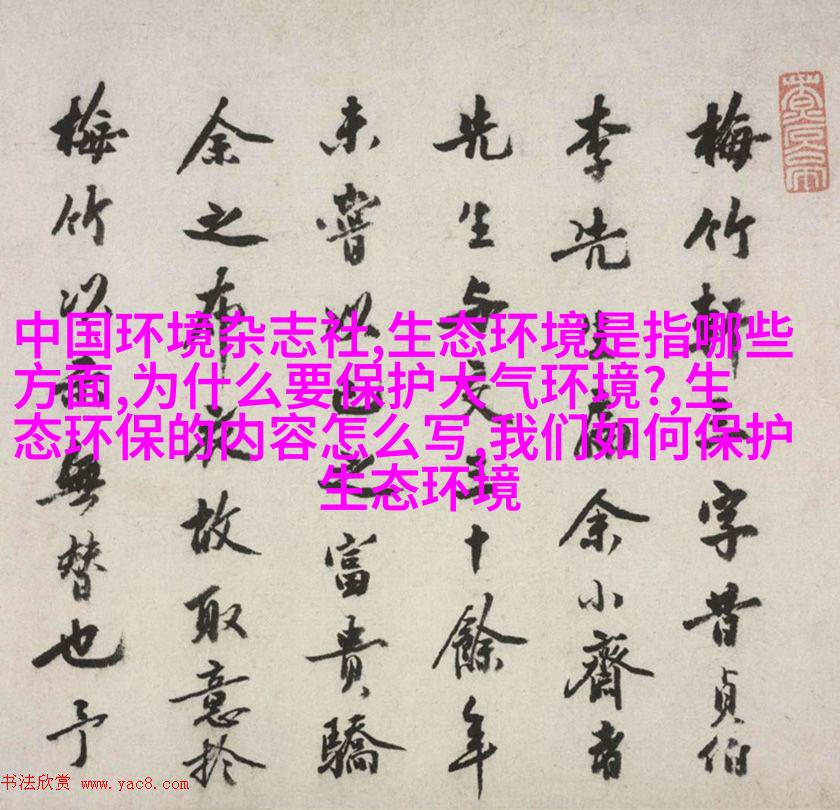 中国环境杂志社,生态环境是指哪些
方面,为什么要保护大气环境?,生
态环保的内容怎么写,我们如何保护
生态环境
梅竹軒字昔貞伯
李先余小齋者
先生与交三十餘年
未嘗以己之富貴驕
余之布故取意於
梅竹以無替也予
书法欣赏 www.yac8.com